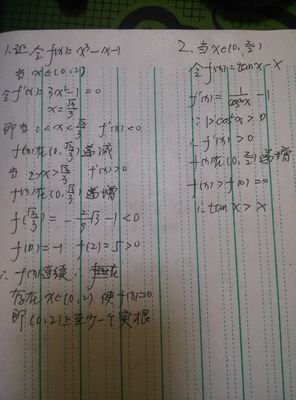 1. 证 令f(x)=x³-x-1
当 x∈(0,2)
令f'(x)=3x²-1=0
x=√3/3
即当 0<x<√3/3 f'(x)<0
f(x)在(0,√3/3)递减
当 2>x>√3/3 f'(x)>0
f(x)在(0,√3/3)递增
f(√3/3)=-2/9√3-1<0
f(0)=-1 f(2)=5>0
∴ f(x)连续 ∴
存在 x∈(0,2) 使f(x)=0
即(0,2)上至少一个实根
2. 当x∈(0,π/2)
令f(x)=tanx-x
f'(x)=1/cos²x-1
∵1>cos²x>0
∴f'(x)>0
f(x)在(0,π/2)递增
f(x)>f(0)=0
∴tanx>x